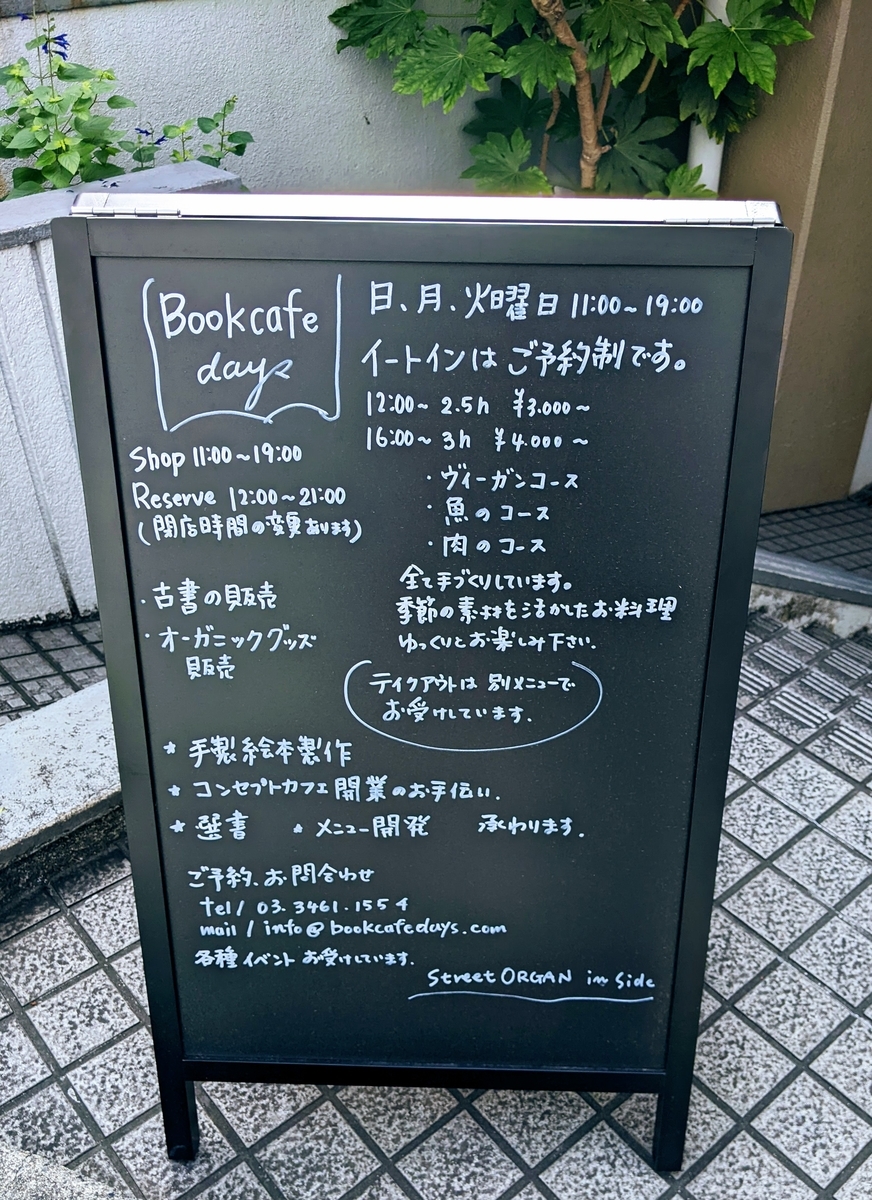 Bookcafe
days
日、月、火曜日 11:00~19:00
イートインは ご予約制です。
12:00~ 2.5h ¥3.000~
16:00~ 3h ¥4.000~
・ヴィーガンコース
・魚のコース
・肉のコース
全て手づくりしています。
季節の素材を活かしたお料理
ゆっくりとお楽しみ下さい.
テイクアウトは 別メニューで
お受けしています.
Shop 11:00~19:00
Reserve 12:00~21:00
(閉店時間の変更あります)
・古書の販売
・オーガニックグッズ
販売
★ 手製絵本製作
★ コンセプトカフェ開業のお手伝い.
★ 選書 ★ メニュー開発 承わります.
ご予約、お問合わせ
tel/ 03.3461.1554
mail/info@bookcafedays.com
各種イベント お受けしています.
Street ORGAN in Side